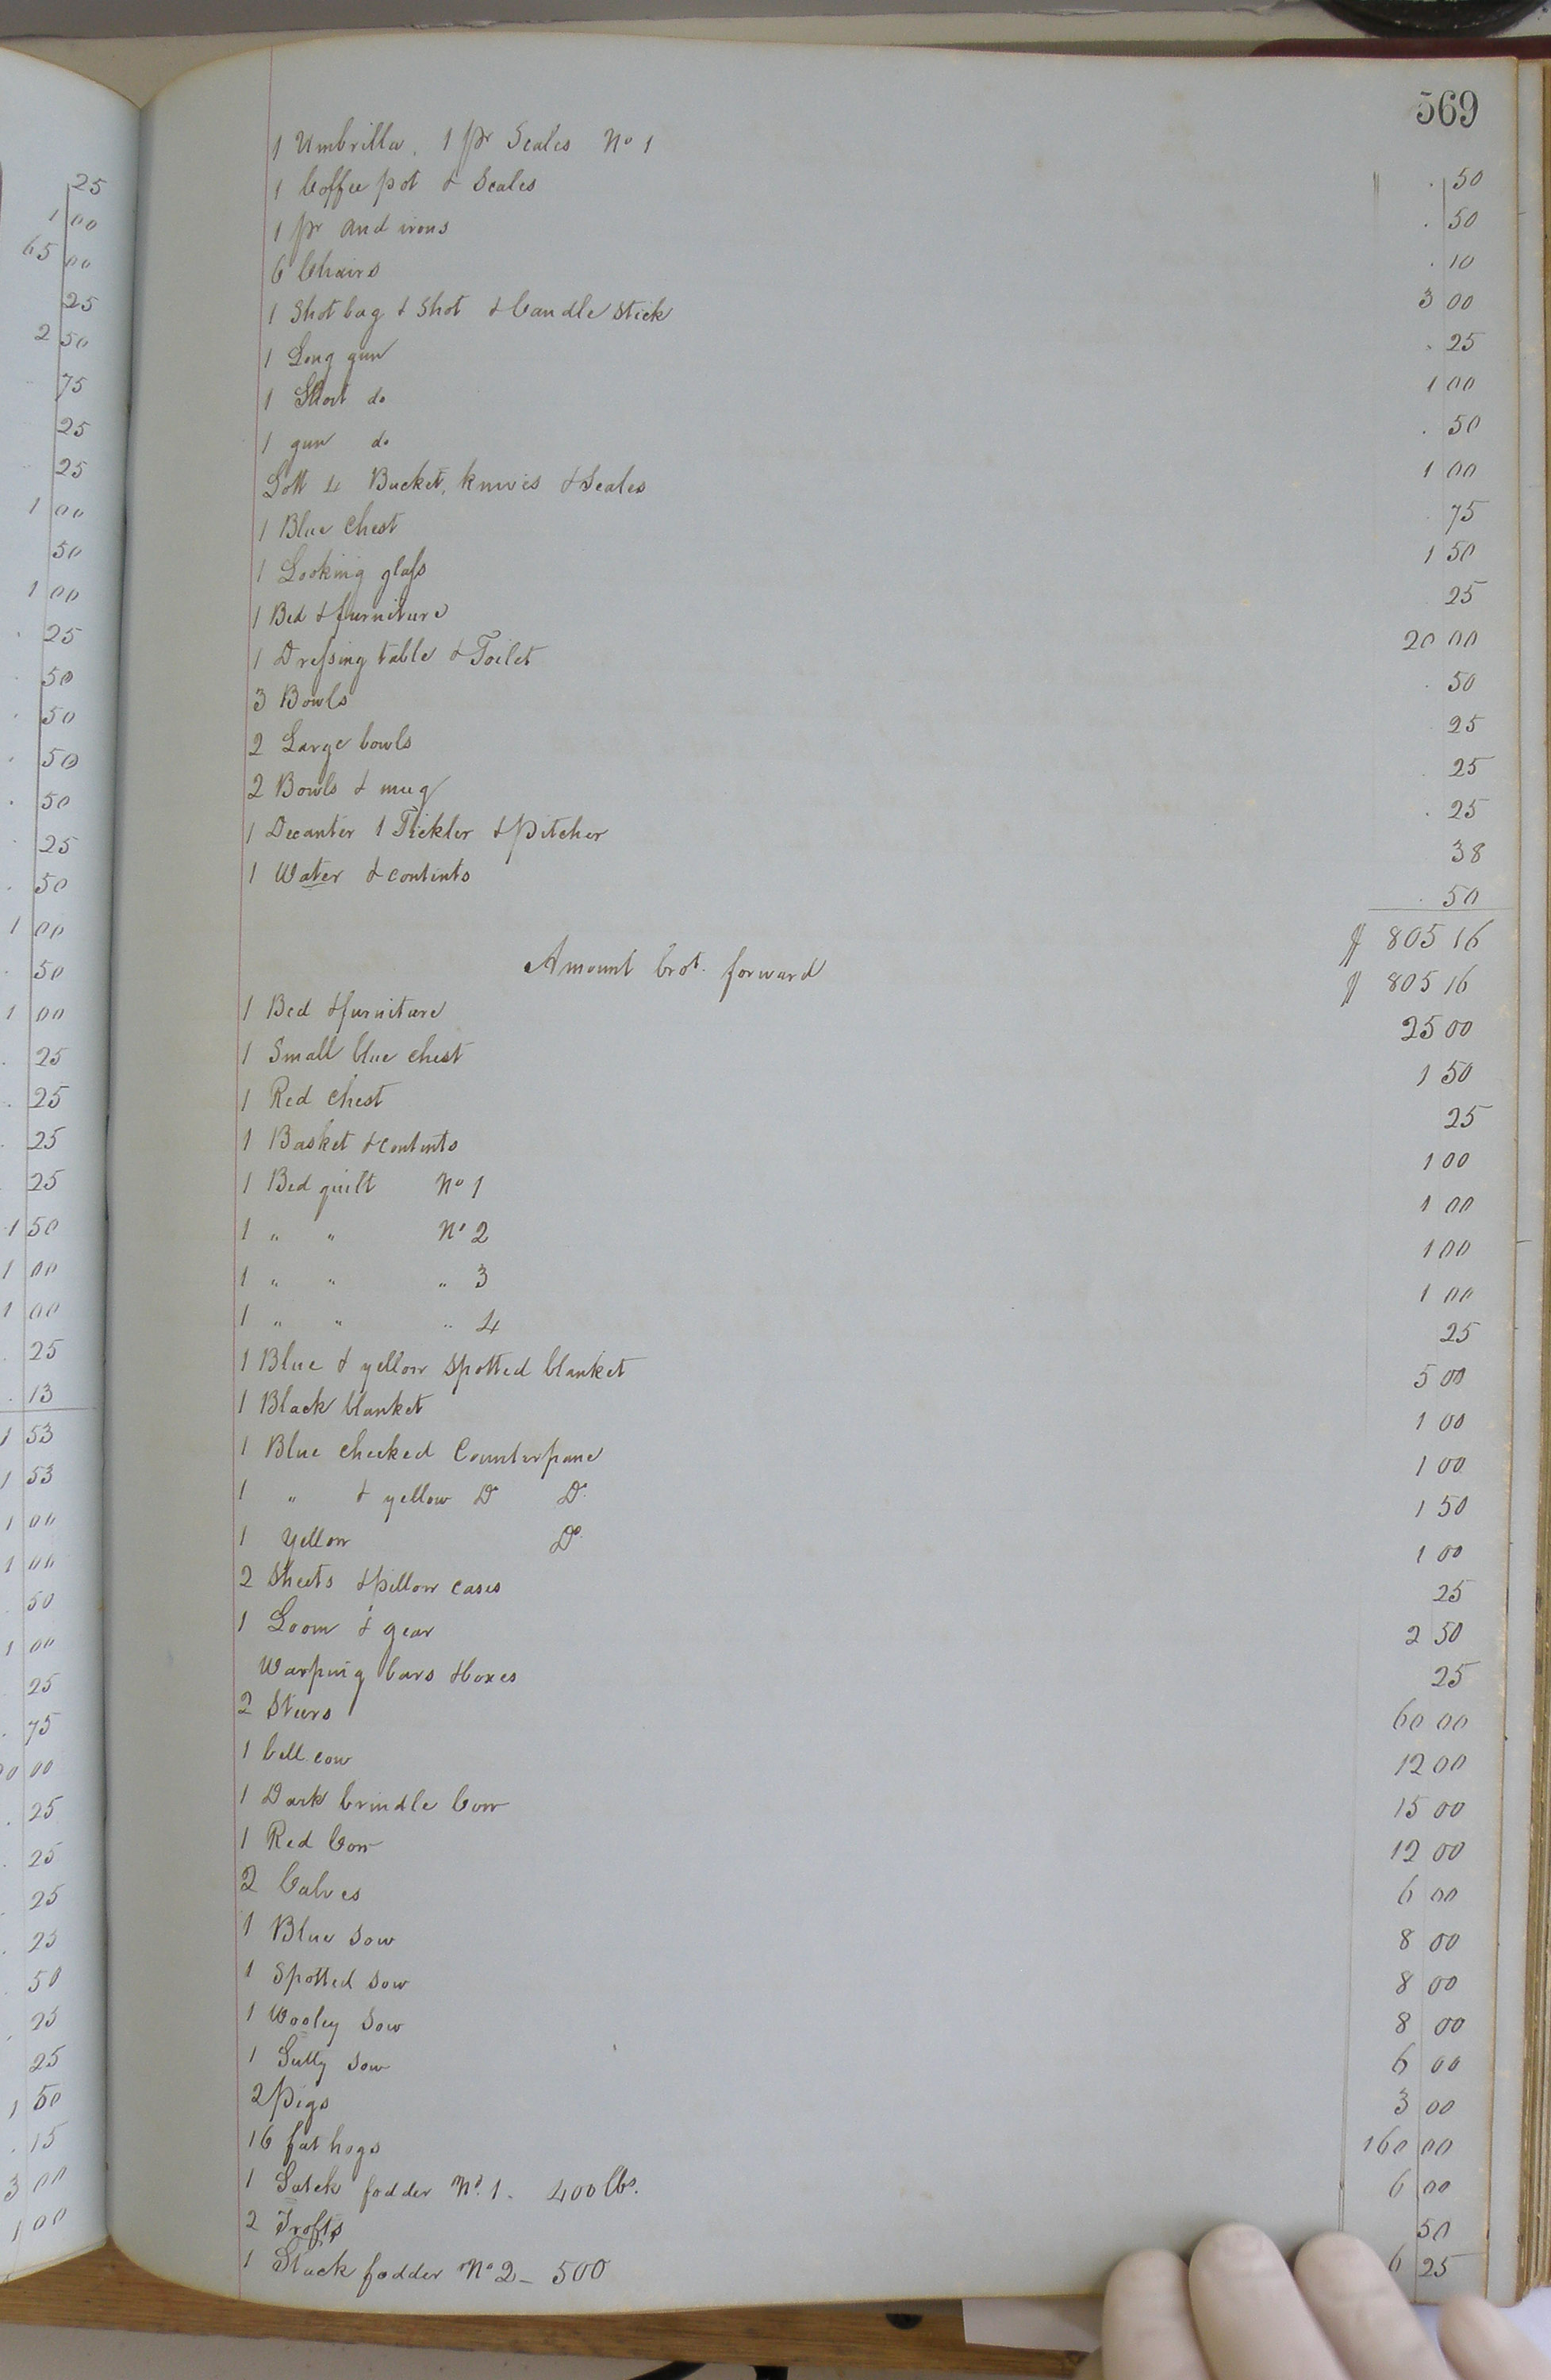 25
1 00
65 00
25
2 50
75
25
25
1 00
50
1 00
25
50
50
50
50
25
50
1 00
50
1 00
25
25
25
25
1 50
1 00
1 00
25
13
1 53
1 53
1 00
1 00
50
1 00
25
75
00
25
25
25
25
50
25
25
1 50
15
3 00
1 00
569
1 Umbrilla, 1 pr Scales No 1 . 50
1 Coffee pot & Scales . 50
1 pr and irons . 10
6 Chairs 3 00
1 Shot bag & Shot & Candle stick . 25
1 Long gun 1 00
1 Short do . 50
1 gun do 1 00
Lott 4 Bucket, knives & Scales 75
1 Blue Chest 1 50
1 Looking glass 25
1 Bed & furniture 20 00
1 Dressing table & Toilet . 50
3 Bowls 25
2 Large bowls 25
2 Bowls & mug . 25
1 Decanter 1 Tickler & Pitcher 38
1 Water & contints . 50
$ 805 16
Amount brot. forward $ 805 16
1 Bed & furniture 25 00
1 Small blue chest 1 50
1 Red Chest 25
1 Basket & contints 1 00
1 Bed quilt No 1 1 00
1 " " No 2 1 00
1 " " " 3 1 00
1 " " " 4 25
1 Blue & yellow Spotted blanket 5 00
1 Black blanket 1 00
1 Blue checked Counterpane 1 00
1 " & yellow Do Do 1 50
1 Yellow Do 1 00
2 Sheets & pillow cases 25
1 Loom & gear 2 50
Warping bars & boxes 25
2 Steers 60 00
1 bell cow 12 00
1 Dark brindle Cow 15 00
1 Red Cow 12 00
2 Calves 6 00
1 Blue Sow 8 00
1 Spotted Sow 8 00
1 Wooley Sow 8 00
1 Sow 6 00
2 Pigs 3 00
16 fat hogs 160 00
1 Satck fodder No. 1 - 400 lbs. 6 00
2 Trofts 50
1 Stack fodder No 2 - 500 6 25